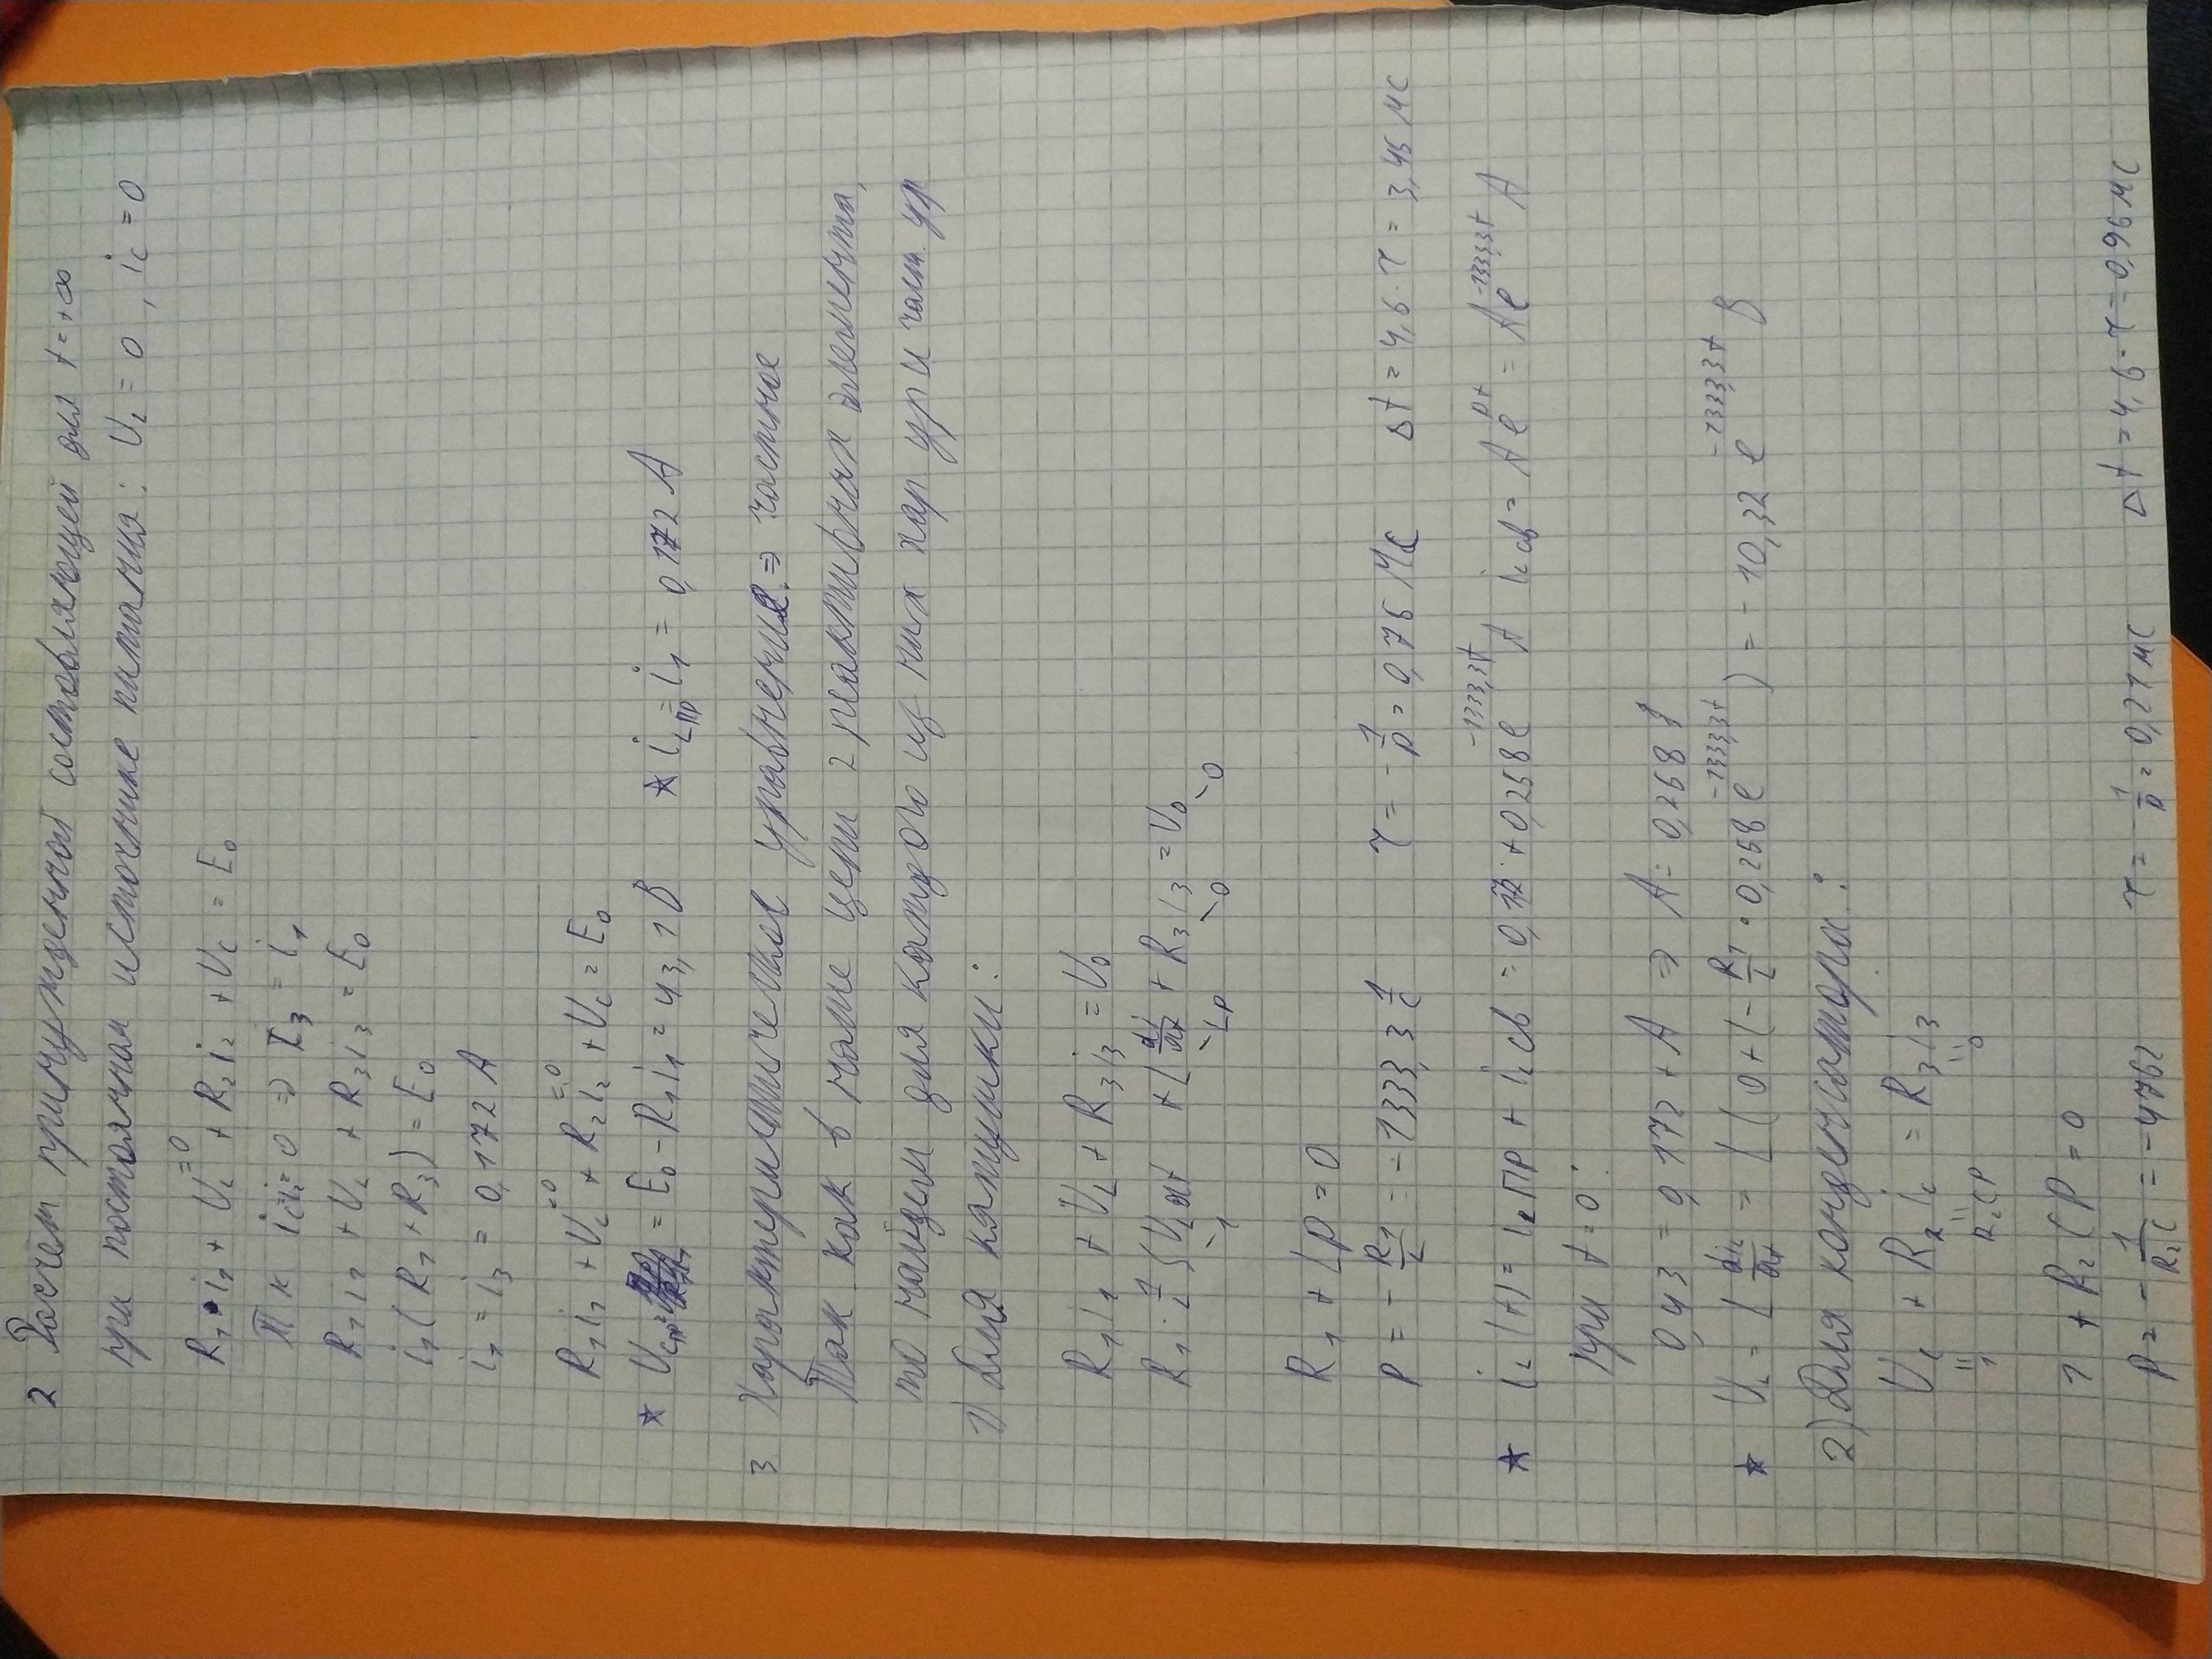 2 Расчет принужденной составляющей для t=+∞
при постоянном источнике питания: U_L = 0, i_C = 0
R₁·i₁ + U_L^{=0} + R₂i₂ + U_C = E₀
Тк i_C=i₂=0 => I₃ = i₁
R₁i₁ + U_L + R₃i₃ = E₀
i₁(R₁+R₃) = E₀
i₁ = i₃ = 0,172 A
R₁i₁ + U_L^{=0} + R₂i₂^{=0} + U_C = E₀
* U_Cпр = E₀ - R₁i₁ = 43,1 В * i_Lпр = i₁ = 0,172 A
3 Характеристическое уравнение => частное
Так как в наше цепи 2 реактивных элемента,
то найдем для каждого из них хар ур и част. ур
1) Для катушки:
R₁i₁ + U_L + R₃i₃ = U₀
R₁·1/L ∫U_L dt + L di/dt + R₃i₃ = U₀
~1 ~Lp ~0 ~0
R₁ + Lp = 0
p = - R₁/L = -1333,3 1/c τ = - 1/p = 0,75 мс Δt = 4,6·τ = 3,45 мс
* i_L(t) = i_Lпр + i_Lсв = 0,172 + 0,258e^{-1333,3t} A i_Lсв = Ae^{pt} = Ae^{-1333,3t} A
при t=0:
0,43 = 0,172 + A => A = 0,258
* U_L = L di_L/dt = L(0+(-R₁/L · 0,258e^{-1333,3t}) = -10,32 e^{-1333,3t} В
2) Для конденсатора:
U_C + R₂i_C = R₃i₃
"1 "R₂Cp "0
1 + R₂Cp = 0
p = - 1/R₂C = -4762 τ = - 1/p = 0,21 мс Δt = 4,6·τ = 0,96 мс